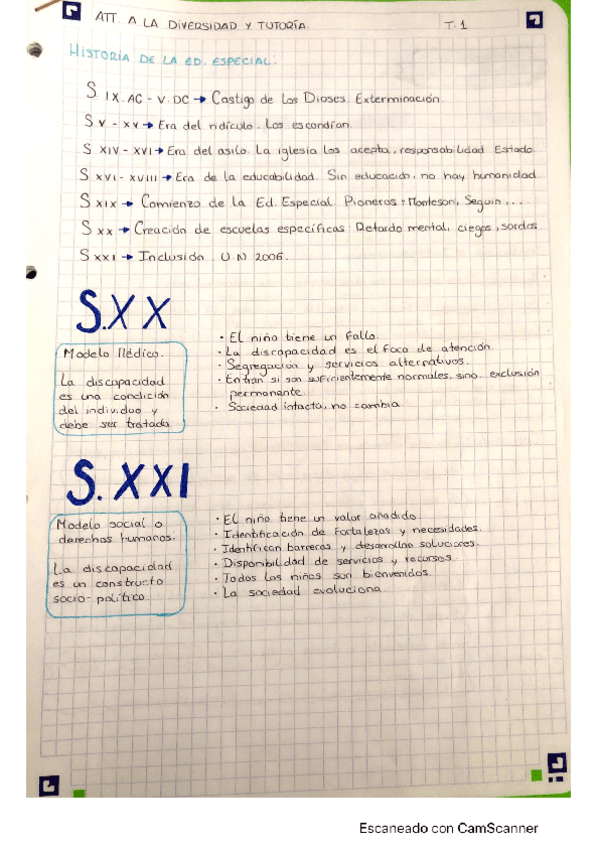 ATT. A LA DIVERSIDAD Y TUTORÍA. T. 1
HISTORIA DE LA ED. ESPECIAL:
S IX. AC - V. DC → Castigo de los Dioses. Exterminación.
S V - XV → Era del ridículo. Los escondían.
S XIV - XVI → Era del asilo. La iglesia los acepta, responsabilidad Estado.
S XVI - XVIII → Era de la educabilidad. Sin educación, no hay humanidad.
S XIX → Comienzo de la Ed. Especial. Pioneros: Montesori, Seguin, ...
S XX → Creación de escuelas específicas. Retardo mental, ciegos, sordos.
S XXI → Inclusión. UN 2006.
S.XX
Modelo Médico.
La discapacidad
es una condición
del individuo y
debe ser tratada.
· El niño tiene un fallo.
· La discapacidad es el foco de atención.
· Segregación y servicios alternativos.
· Entran si son suficientemente normales, sino, exclusión
permanente.
· Sociedad intacta, no cambia.
S. XXI
Modelo social o
derechos humanos.
La discapacidad
es un constructo
socio-político.
· El niño tiene un valor añadido.
· Identificación de fortalezas y necesidades.
· Identifican barreras y desarrollan soluciones.
· Disponibilidad de servicios y recursos.
· Todos los niños son bienvenidos.
· La sociedad evoluciona.
Escaneado con CamScanner